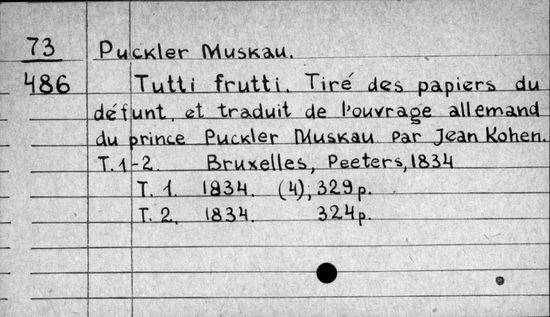 73 Puckler Muskau.
486 Tutti frutti. Tiré des papiers du
défunt, et traduit de l'ouvrage allemand
du prince Puckler Muskau par Jean Kohen.
T. 1-2. Bruxelles, Peeters, 1834
T. 1. 1834. (4), 329 p.
T. 2. 1834. 324 p.